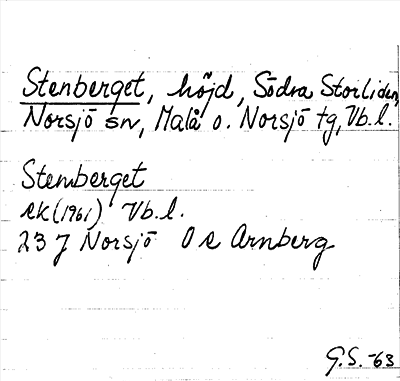 Stenberget, höjd, Södra Storliden,
Norsjö sn, Malå o. Norsjö tg, Vb.l.
Stenberget
ek (1961) Vb.l.
23 J Norsjö O e Arnberg
G.S. -63